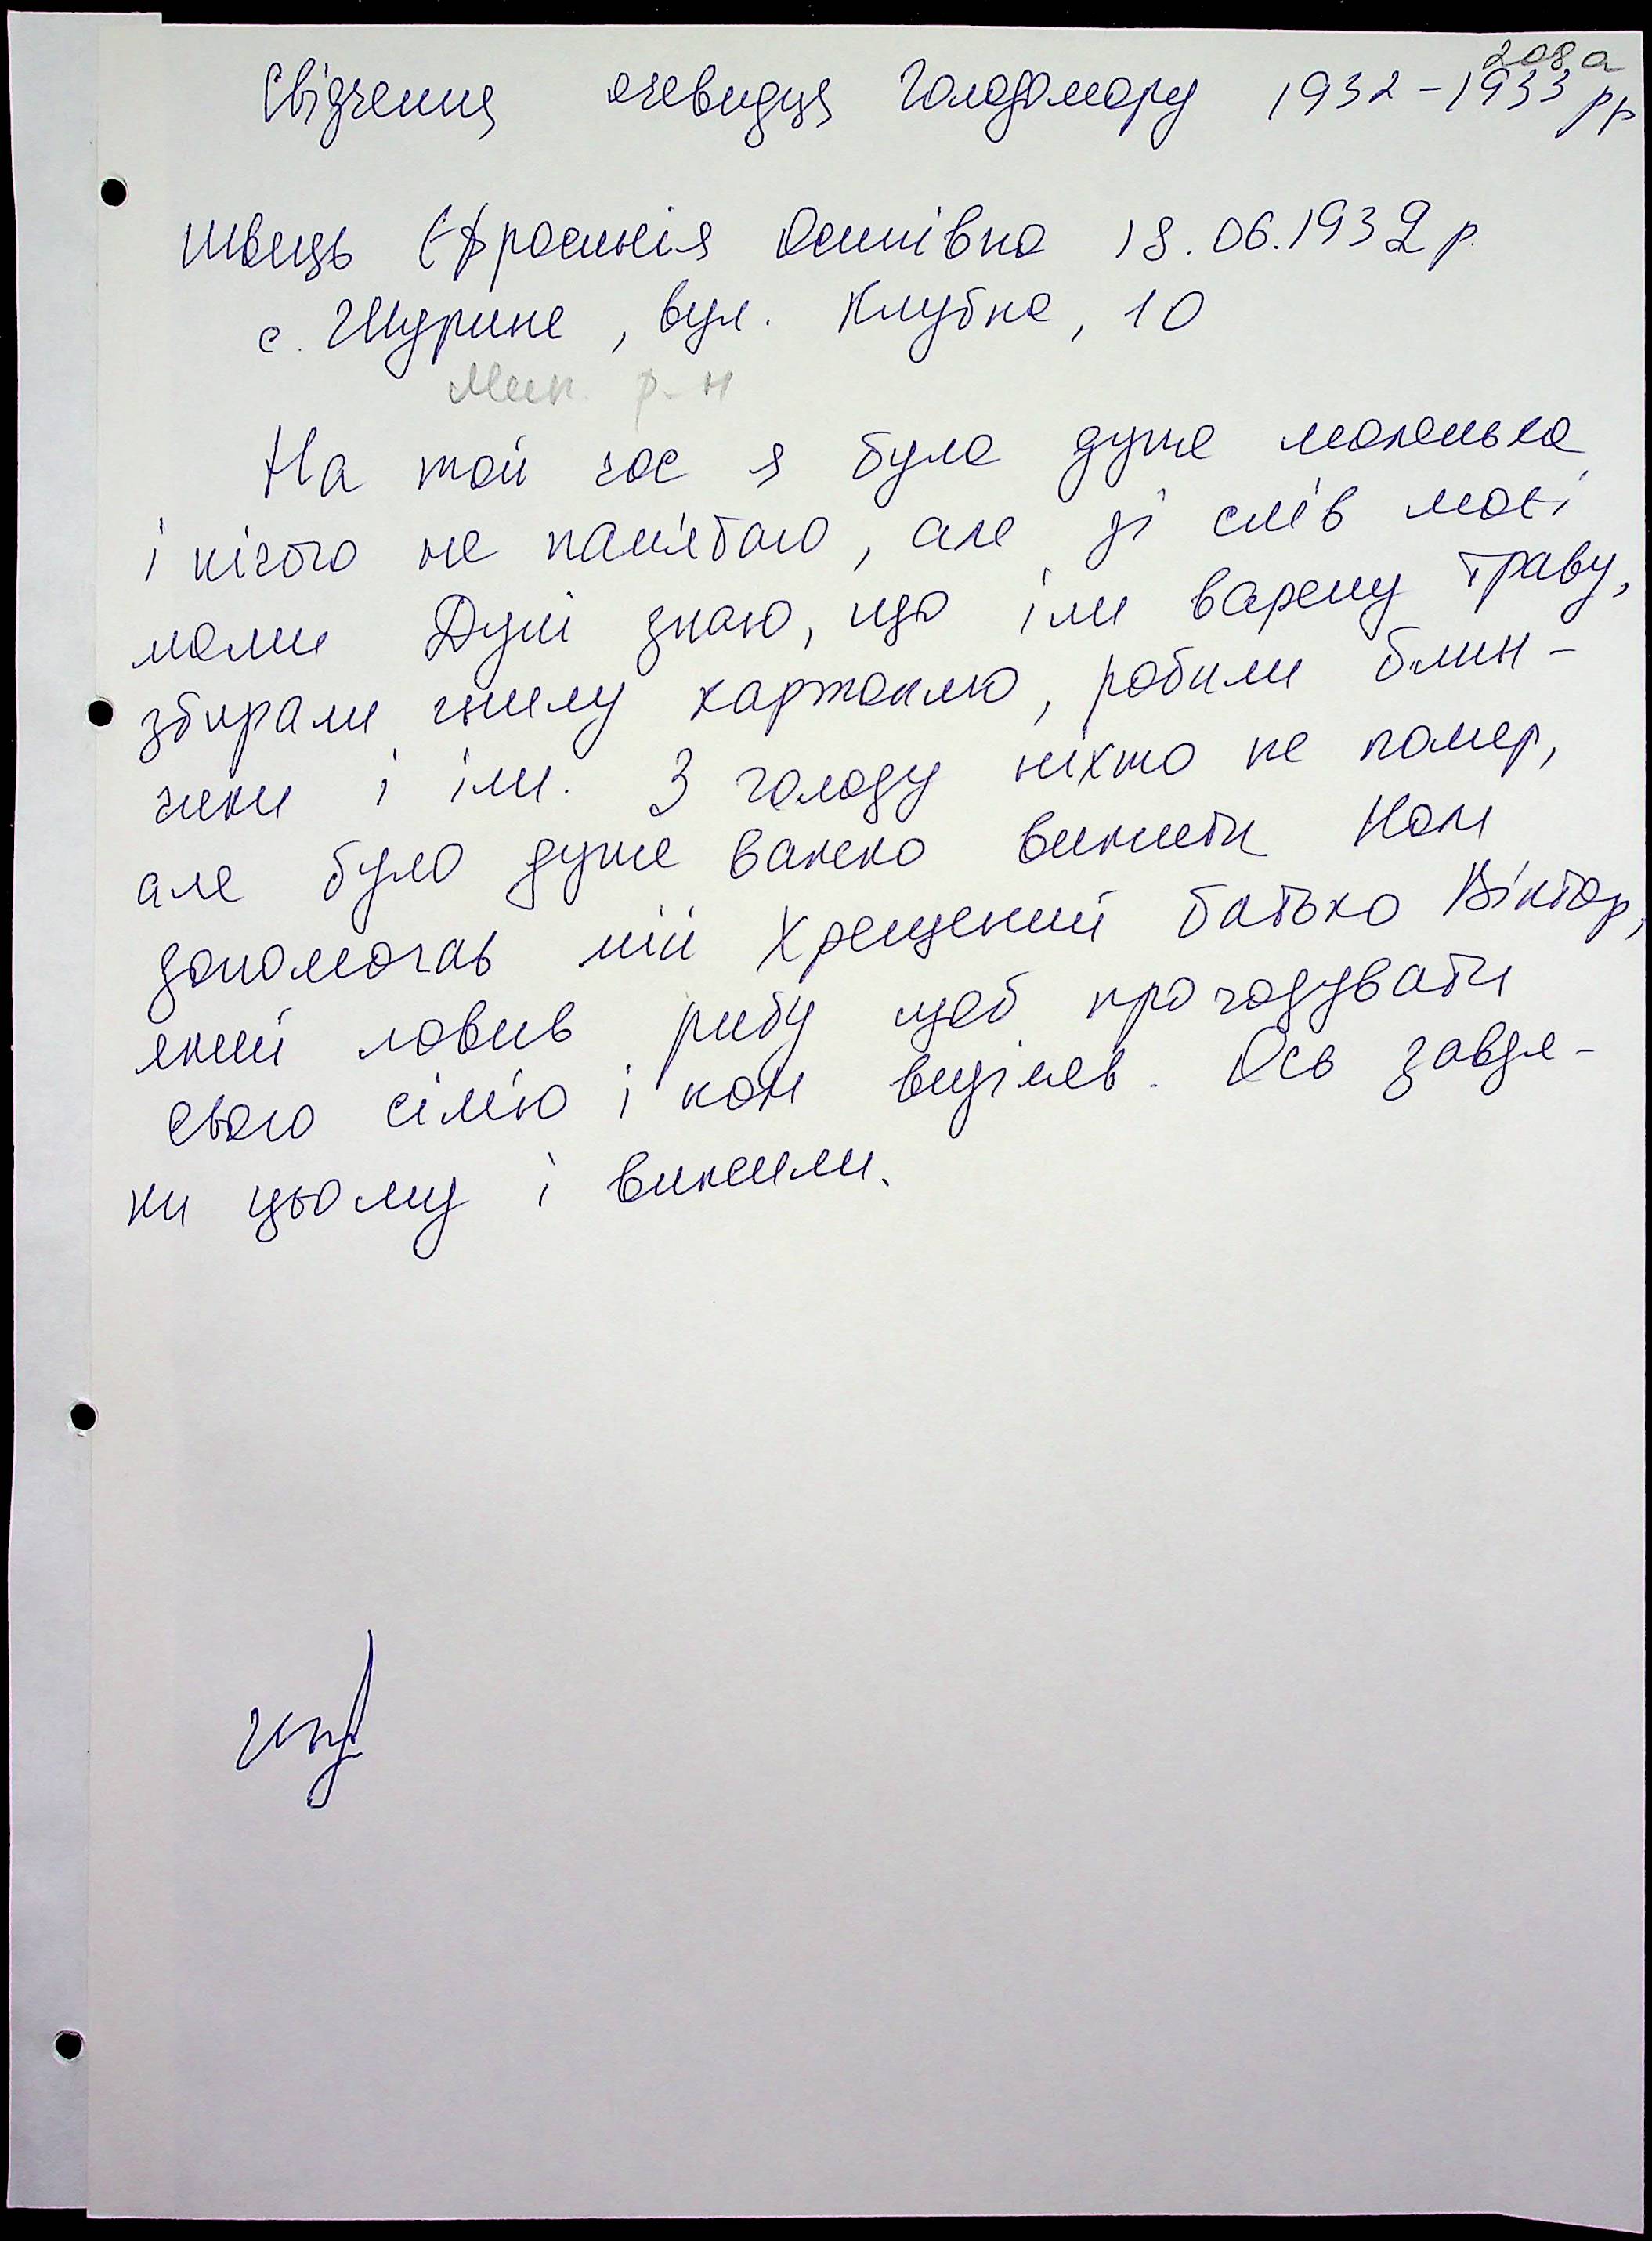 208а
Свідчення очевидця Голодомору 1932-1933 рр
Швець Єфросинія Осипівна 18.06.1932 р.
с. Шурине, вул. Клубна, 10
Мик. р-н
На той час я була дуже маленька
і нічого не пам'ятаю, але зі слів моєї
мами Дуні знаю, що їли варену траву,
збирали гнилу картоплю, робили блин-
чики і їли. З голоду ніхто не помер,
але було дуже важко вижити Нам
допомагав мій хрещений батько Віктор,
який ловив рибу щоб прогодувати
свою сім'ю і нам виділяв. Ось завдя-
ки цьому і вижили.